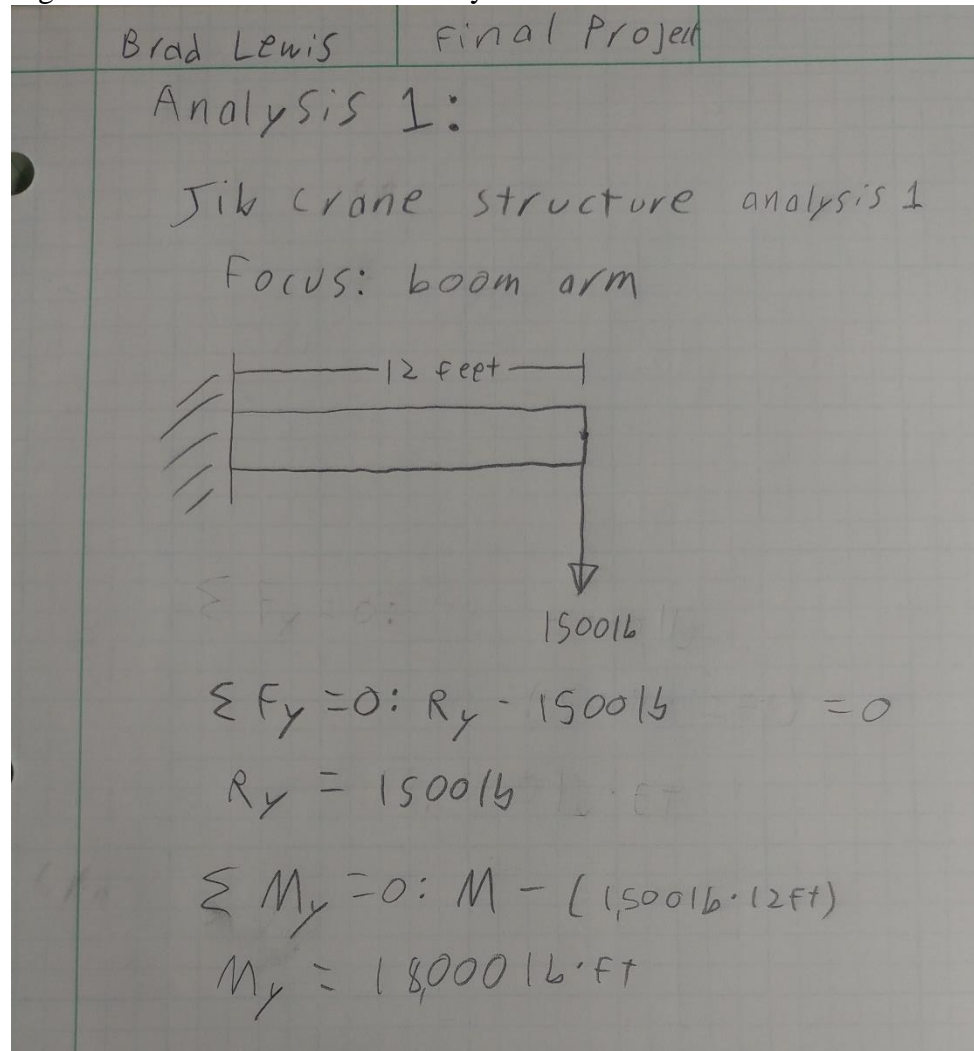 Brad Lewis
Final Project
Analysis 1:
Jib crane structure analysis 1
Focus: boom arm
12 feet
1500lb
Σ Fy =0: Ry - 1500lb =0
Ry = 1500lb
Σ My =0: M - (1,500lb·12ft)
My = 18,000 lb·ft